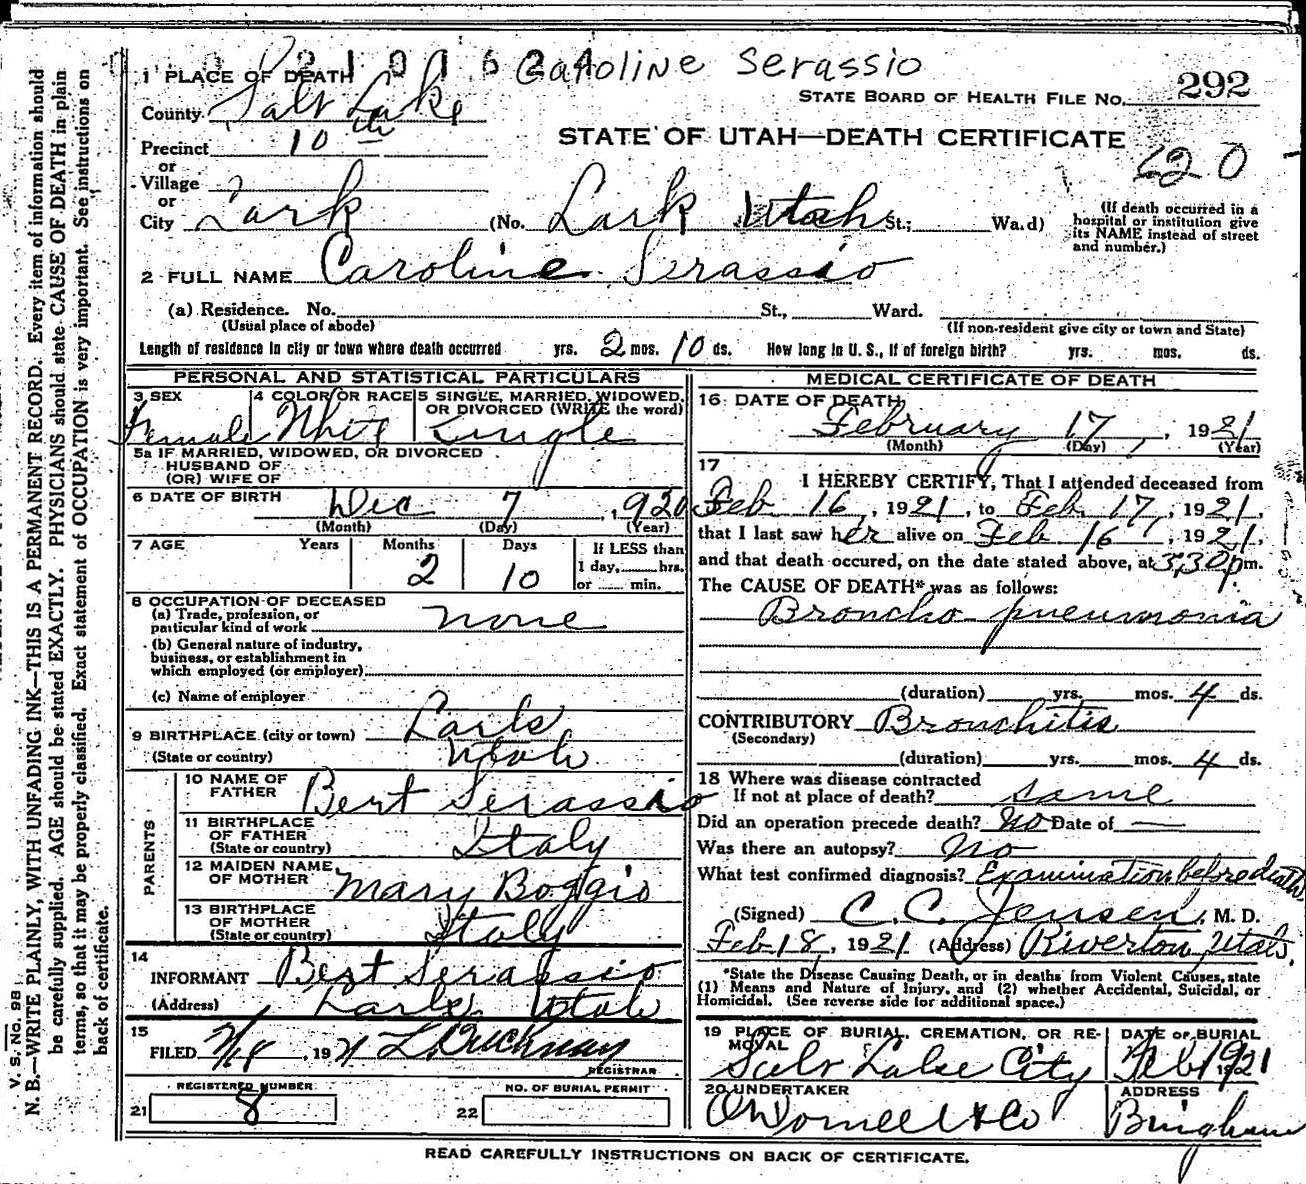 Caroline Serassio
292
STATE BOARD OF HEALTH FILE NO.
STATE OF UTAH—DEATH CERTIFICATE
620
1 PLACE OF DEATH
County Salt Lake
Precinct 10th
or
Village
or
City Lark (No. Lark Utah St.; Ward)
(If death occurred in a hospital or institution give its NAME instead of street and number.)
2 FULL NAME Caroline Serassio
(a) Residence. No. St., Ward.
(Usual place of abode) (If non-resident give city or town and State)
Length of residence in city or town where death occurred yrs. 2 mos. 10 ds. How long in U. S., if of foreign birth? yrs. mos. ds.
PERSONAL AND STATISTICAL PARTICULARS
3 SEX 4 COLOR OR RACE 5 SINGLE, MARRIED, WIDOWED,
OR DIVORCED (WRITE the word)
Female White Single
5a IF MARRIED, WIDOWED, OR DIVORCED
HUSBAND OF
(OR) WIFE OF
6 DATE OF BIRTH Dec 7, 1920
(Month) (Day) (Year)
7 AGE Years Months Days If LESS than
1 day, hrs.
2 10 or min.
8 OCCUPATION OF DECEASED
(a) Trade, profession, or
particular kind of work none
(b) General nature of industry,
business, or establishment in
which employed (or employer)
(c) Name of employer
9 BIRTHPLACE (city or town) Lark
(State or country) Utah
PARENTS
10 NAME OF
FATHER Bert Serassio
11 BIRTHPLACE
OF FATHER
(State or country) Italy
12 MAIDEN NAME
OF MOTHER Mary Boggio
13 BIRTHPLACE
OF MOTHER
(State or country) Italy
14
INFORMANT Bert Serassio
(Address) Lark Utah
15
FILED 2/18, 1921
REGISTRAR
REGISTERED NUMBER NO. OF BURIAL PERMIT
21 8 22
MEDICAL CERTIFICATE OF DEATH
16 DATE OF DEATH
February 17, 1921
(Month) (Day) (Year)
17
I HEREBY CERTIFY, That I attended deceased from
Feb 16, 1921, to Feb. 17, 1921,
that I last saw her alive on Feb 16, 1921,
and that death occured, on the date stated above, at 3,30 pm.
The CAUSE OF DEATH* was as follows:
Broncho pneumonia
(duration) yrs. mos. 4 ds.
CONTRIBUTORY Bronchitis
(Secondary)
(duration) yrs. mos. 4 ds.
18 Where was disease contracted
If not at place of death? same
Did an operation precede death? No Date of —
Was there an autopsy? No
What test confirmed diagnosis? Examination before death
(Signed) C. C. Jensen, M. D.
Feb 18, 1921 (Address) Riverton, Utah.
*State the Disease Causing Death, or in deaths from Violent Causes, state
(1) Means and Nature of Injury, and (2) whether Accidental, Suicidal, or
Homicidal. (See reverse side for additional space.)
19 PLACE OF BURIAL, CREMATION, OR RE-
MOVAL
DATE OF BURIAL
Salt Lake City Feb 19 1921
20 UNDERTAKER ADDRESS
O'Donnell & Co Bingham
READ CAREFULLY INSTRUCTIONS ON BACK OF CERTIFICATE.
V. S. No. 98
N. B.—WRITE PLAINLY, WITH UNFADING INK—THIS IS A PERMANENT RECORD. Every item of information should
be carefully supplied. AGE should be stated EXACTLY. PHYSICIANS should state CAUSE OF DEATH in plain
terms, so that it may be properly classified. Exact statement of OCCUPATION is very important. See instructions on
back of certificate.